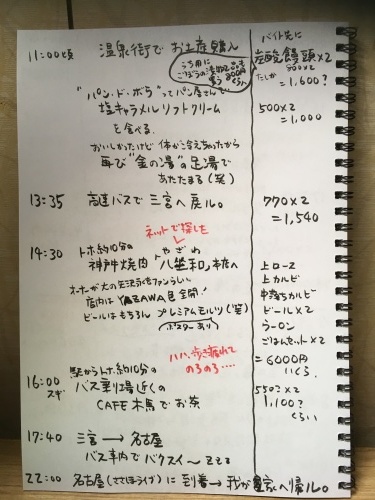 11:00頃 温泉街でお土産購入
うち用に
ごぼうの漬物
200円
くらい
バイト先に
炭酸饅頭×2
たしか 800×2
=1,600?
"パン・ド・ボウ"ってパン屋さんで
塩キャラメルソフトクリーム
を食べる。
500×2
=1,000
おいしかったけど体が冷えちゃったから
再び"金の湯"の足湯で
あたたまる(笑)
13:35 高速バスで三宮へ戻ル。
770×2
=1,540
ネットで探した
14:30 トホ約10分の
やざわ
神戸焼肉 八坐和 本店へ
オーナーが大の矢沢永吉ファンらしい
店内はYAZAWA色全開!
ビールはもちろん プレミアムモルツ(笑)
ポスターあり
上ロース
上カルビ
中落ちカルビ
ビール×2
ウーロン
ごはんセット×2
=6000円
いくら
ハハ、歩き疲れて
のろのろ‥‥
駅からトホ約10分の
16:00
スギ
バス乗り場近くの
CAFE 木馬でお茶
550?×2
1,100?
くらい
17:40 三宮→名古屋
バス車内でバクスイ〜zzz
22:00 名古屋(ささしまライブ)に到着→我が家へ帰ル。